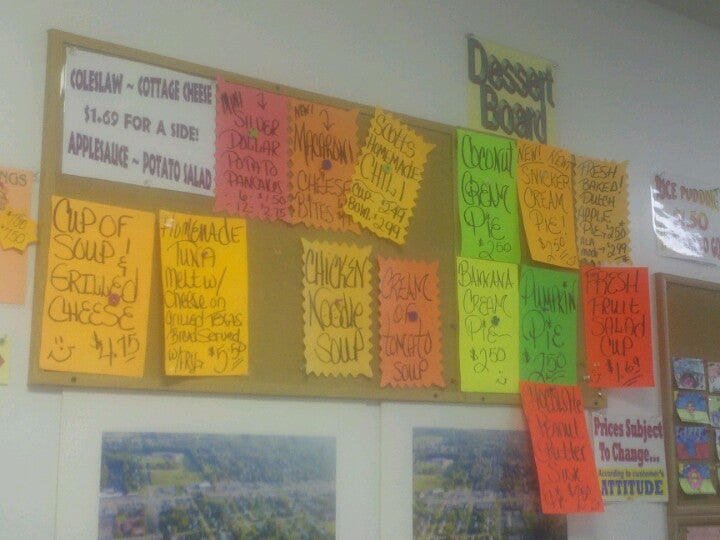 Dessert
Board
COLESLAW ~ COTTAGE CHEESE
$1.69 FOR A SIDE!
APPLESAUCE ~ POTATO SALAD
SILVER
DOLLAR
POTATO
PANCAKES
NEW!
MACARONI
CHEESE
BITES
SCOTT'S
HOMEMADE
CHILI
CUP
BOWL
CUP OF
SOUP!
&
GRILLED
CHEESE
$4.75
HOMEMADE
TUNA
MELT W/
CHEESE ON
GRILLED TEXAS
BREAD SERVED
W/FRY
CHICKEN
NOODLE
SOUP
CREAM
OF
TOMATO
SOUP
COCONUT
CREAM
PIE
2.50
NEW! NEW!
SNICKER
CREAM
PIE!
$2.50
FRESH
BAKED!
DUTCH
APPLE
PIE $2.50
ALA
MODE 2.99
BANANA
CREAM
PIE
$2.50
PUMPKIN
PIE
2.50
FRESH
FRUIT
SALAD
CUP
$1.69
PEANUT
BUTTER
$2.50
Prices Subject
To Change...
According to customer's
ATTITUDE